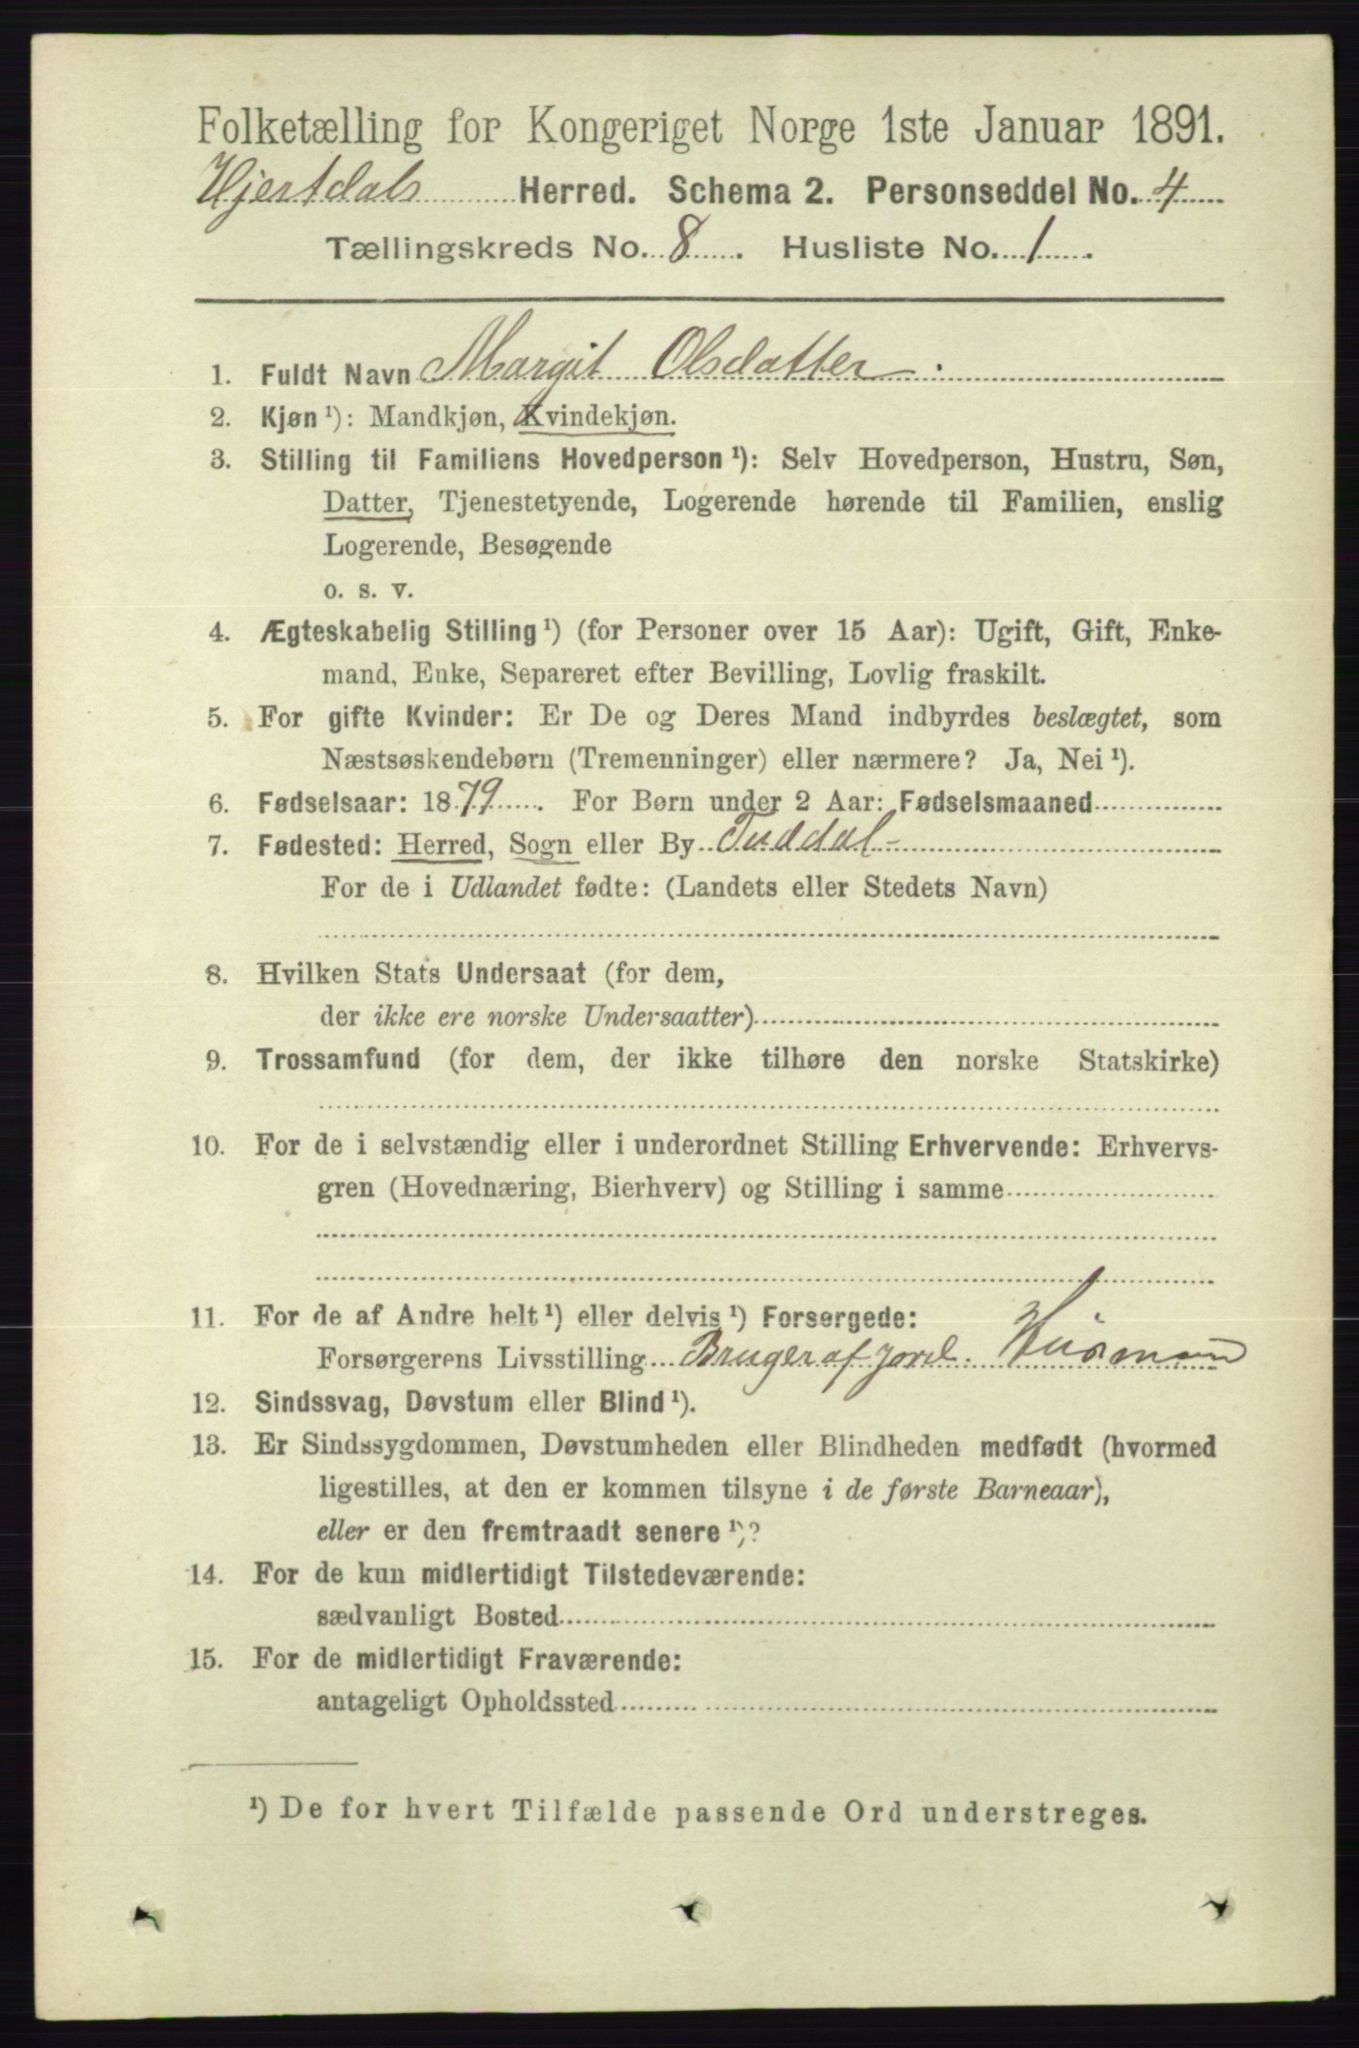 Folketælling for Kongeriget Norge 1ste Januar 1891.
Hjertdals Herred. Schema 2. Personseddel No. 4
Tællingskreds No. 8. Husliste No. 1.
1. Fuldt Navn Margit Olsdatter.
2. Kjøn ¹): Mandkjøn, Kvindekjøn.
3. Stilling til Familiens Hovedperson ¹): Selv Hovedperson, Hustru, Søn,
Datter, Tjenestetyende, Logerende hørende til Familien, enslig
Logerende, Besøgende
o. s. v.
4. Ægteskabelig Stilling ¹) (for Personer over 15 Aar): Ugift, Gift, Enke-
mand, Enke, Separeret efter Bevilling, Lovlig fraskilt.
5. For gifte Kvinder: Er De og Deres Mand indbyrdes beslægtet, som
Næstsøskendebørn (Tremenninger) eller nærmere? Ja, Nei ¹).
6. Fødselsaar: 1879. For Børn under 2 Aar: Fødselsmaaned
7. Fødested: Herred, Sogn eller By Tuddal
For de i Udlandet fødte: (Landets eller Stedets Navn)
8. Hvilken Stats Undersaat (for dem,
der ikke ere norske Undersaatter)
9. Trossamfund (for dem, der ikke tilhøre den norske Statskirke)
10. For de i selvstændig eller i underordnet Stilling Erhvervende: Erhvervs-
gren (Hovednæring, Bierhverv) og Stilling i samme
11. For de af Andre helt ¹) eller delvis ¹) Forsørgede:
Forsørgerens Livsstilling Bruger af jord. Husmann
12. Sindssvag, Døvstum eller Blind ¹).
13. Er Sindssygdommen, Døvstumheden eller Blindheden medfødt (hvormed
ligestilles, at den er kommen tilsyne i de første Barneaar),
eller er den fremtraadt senere ¹)?
14. For de kun midlertidigt Tilstedeværende:
sædvanligt Bosted
15. For de midlertidigt Fraværende:
antageligt Opholdssted
¹) De for hvert Tilfælde passende Ord understreges.